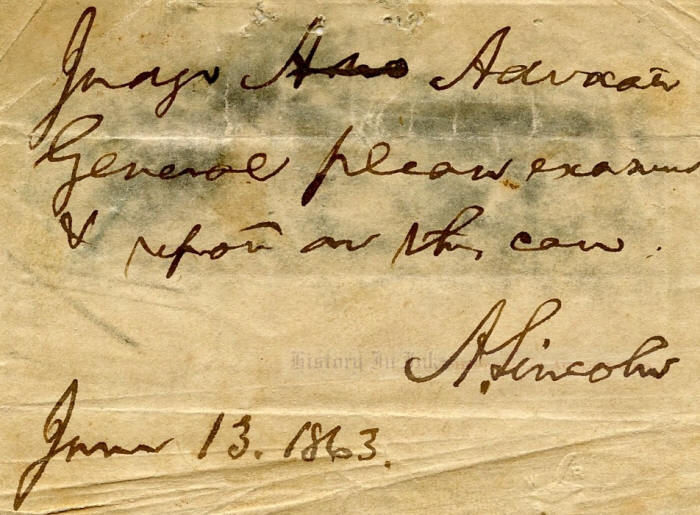 Judge Advocate
General please examine
& report on this case.
History In Ink
A. Lincoln
June 13. 1863.